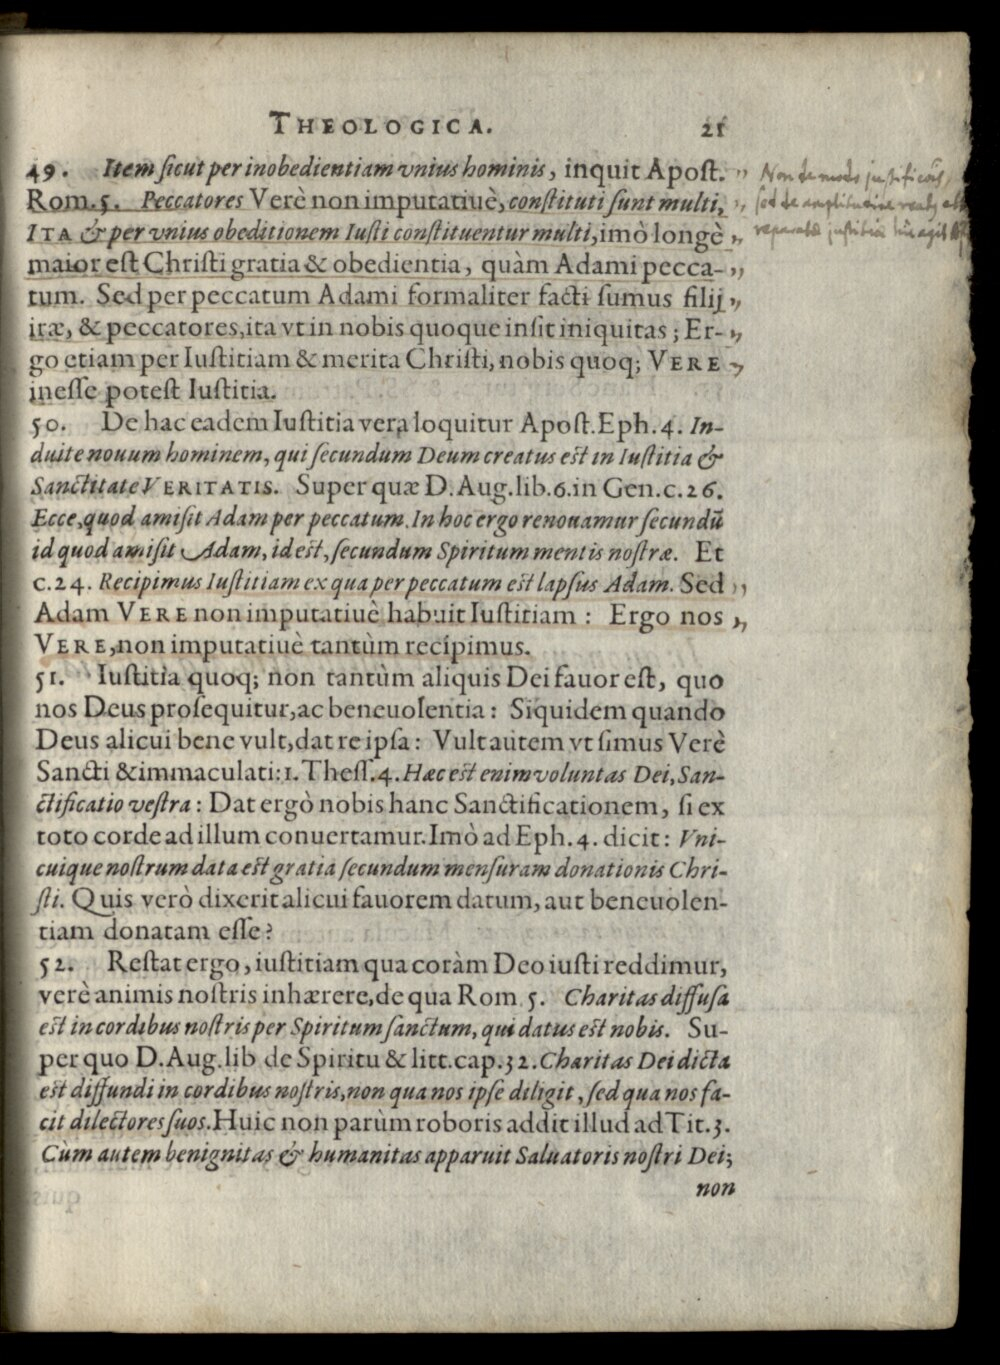 THEOLOGICA. 21
49. Item ſicut per inobedientiam vnius hominis, inquit Apoſt.
Rom. 5. Peccatores Verè non imputatiuè, conſtituti ſunt multi,
ITA & per vnius obeditionem Iuſti conſtituentur multi, imò longè
maior eſt Chriſti gratia & obedientia, quàm Adami pecca-
tum. Sed per peccatum Adami formaliter facti ſumus filij
iræ, & peccatores, ita vt in nobis quoque inſit iniquitas; Er-
go etiam per Iuſtitiam & merita Chriſti, nobis quoq; VERE
ineſſe poteſt Iuſtitia.
50. De hac eadem Iuſtitia vera loquitur Apoſt. Eph. 4. In-
duite nouum hominem, qui ſecundum Deum creatus eſt in Iuſtitia &
Sanctitate VERITATIS. Super quæ D. Aug. lib. 6. in Gen. c. 26.
Ecce, quod amiſit Adam per peccatum. In hoc ergo renouamur ſecundū
id quod amiſit Adam, id eſt, ſecundum Spiritum mentis noſtræ. Et
c. 24. Recipimus Iuſtitiam ex qua per peccatum eſt lapſus Adam. Sed
Adam VERE non imputatiuè habuit Iuſtitiam: Ergo nos
VERE, non imputatiuè tantùm recipimus.
51. Iuſtitia quoq; non tantùm aliquis Dei fauor eſt, quo
nos Deus proſequitur, ac beneuolentia: Siquidem quando
Deus alicui bene vult, dat re ipſa: Vult autem vt ſimus Verè
Sancti & immaculati: 1. Theſſ. 4. Hæc eſt enim voluntas Dei, San-
ctificatio veſtra: Dat ergò nobis hanc Sanctificationem, ſi ex
toto corde ad illum conuertamur. Imò ad Eph. 4. dicit: Vni-
cuique noſtrum data eſt gratia ſecundum menſuram donationis Chri-
ſti. Quis verò dixerit alicui fauorem datum, aut beneuolen-
tiam donatam eſſe?
52. Reſtat ergo, iuſtitiam qua coràm Deo iuſti reddimur,
verè animis noſtris inhærere, de qua Rom. 5. Charitas diffuſa
eſt in cordibus noſtris per Spiritum ſanctum, qui datus eſt nobis. Su-
per quo D. Aug. lib de Spiritu & litt. cap. 32. Charitas Dei dicta
eſt diffundi in cordibus noſtris, non qua nos ipſe diligit, ſed qua nos fa-
cit dilectores ſuos. Huic non parùm roboris addit illud ad Tit. 3.
Cùm autem benignitas & humanitas apparuit Saluatoris noſtri Dei;
non
Non de modo
ſed de amplitudine